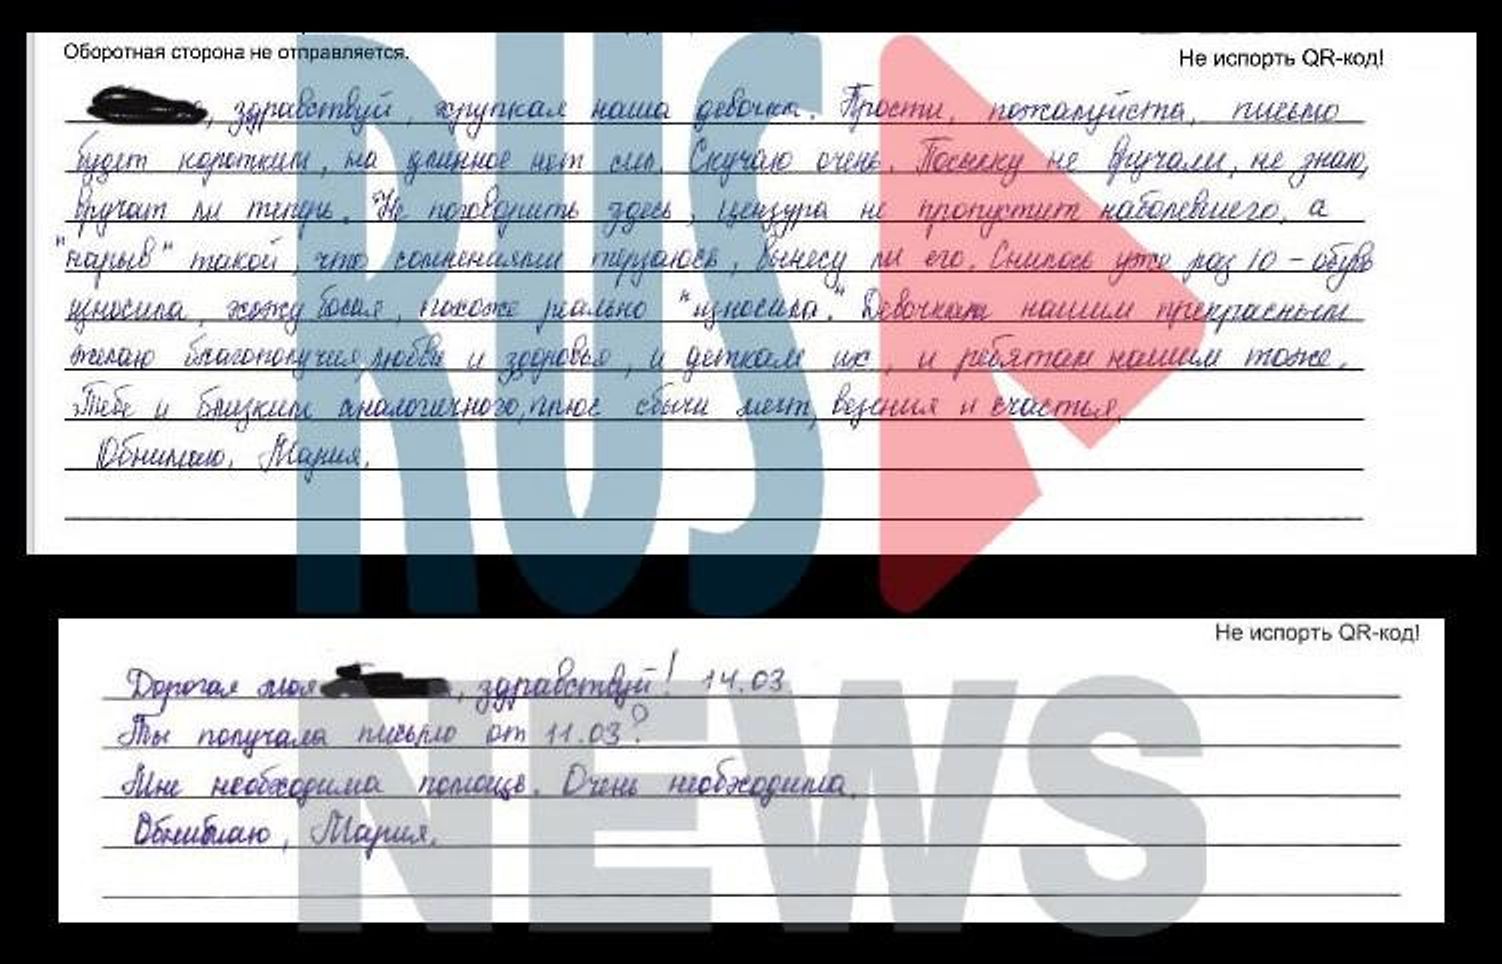 Оборотная сторона не отправляется.
Не испорть QR-код!
, здравствуй, хрупкая наша девочка. Прости, пожалуйста, письмо
будет коротким, на длинное нет сил. Скучаю очень. Посылку не вручали, не знаю,
вручат ли теперь. Не поговорить здесь, цензура не пропустит наболевшего, а
"нарыв" такой, что сомнениями терзаюсь, вынесу ли его. Снилось уже раз 10 – обувь
износила, хожу босая, похоже реально "износила". Девочкам нашим прекрасным
желаю благополучия, любви и здоровья, и деткам их, и ребятам нашим тоже.
Тебе и близким аналогичного, плюс сбычи мечт, везения и счастья.
Обнимаю, Мария.
Не испорть QR-код!
Дорогая моя , здравствуй! 14.03
Ты получала письмо от 11.03?
Мне необходима помощь. Очень необходима.
Обнимаю, Мария.
RUS
NEWS